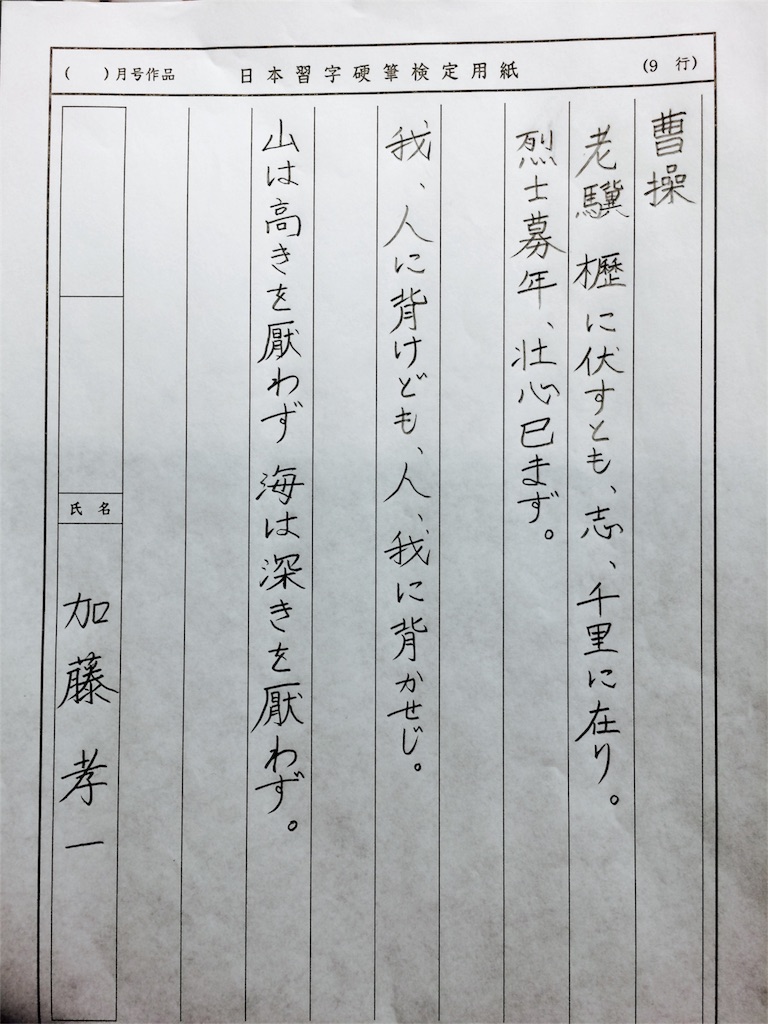 ( )月号作品 日本習字硬筆検定用紙 (9 行)
曹操
老驥 櫪に伏すとも、志、千里に在り。
烈士募年、壮心已まず。
我、人に背けども、人、我に背かせじ。
山は高きを厭わず 海は深きを厭わず。
氏名
加藤 孝一